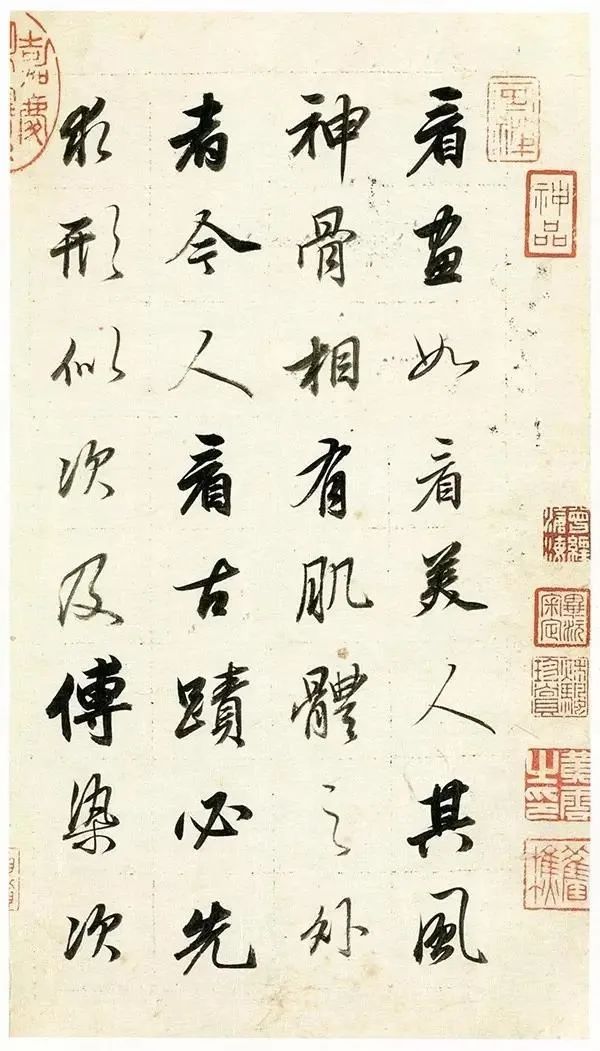 看畫如看美人其風
神骨相有肌體之外
者今人看古蹟必先
求形似次及傅染次
神品